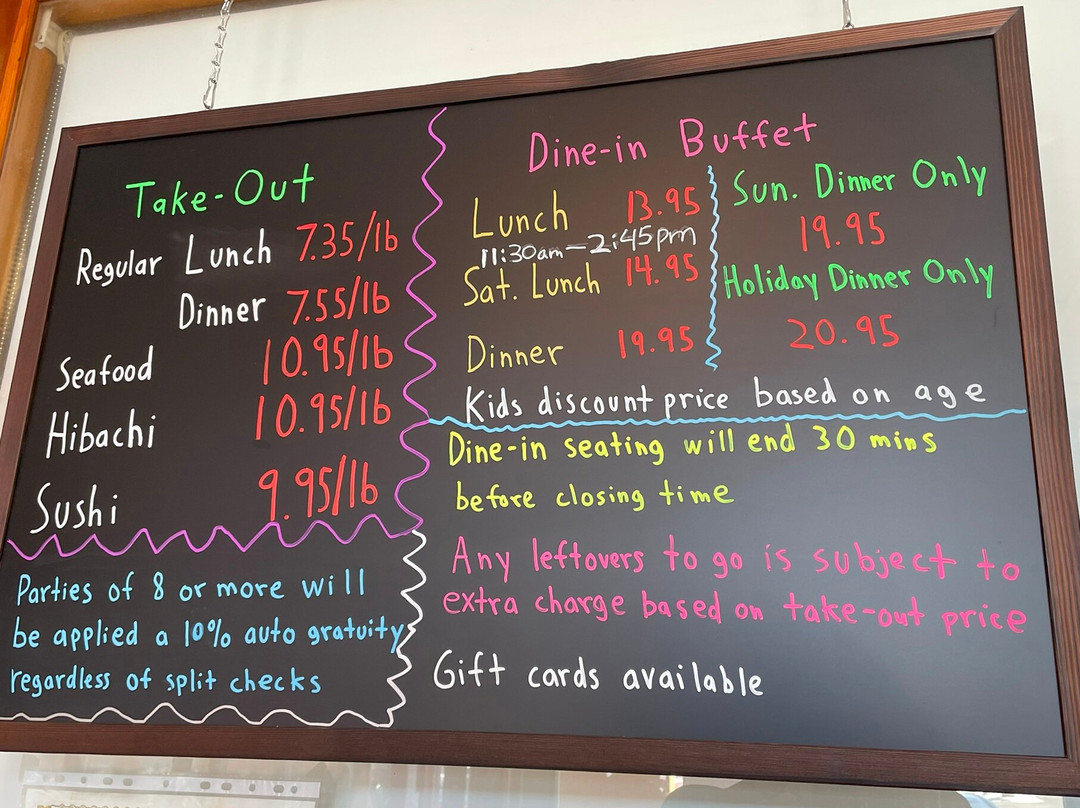 Take-Out
Regular Lunch 7.35/lb
Dinner 7.55/lb
Seafood 10.95/lb
Hibachi 10.95/lb
Sushi 9.95/lb
Parties of 8 or more will
be applied a 10% auto gratuity
regardless of split checks
Dine-in Buffet
Lunch 13.95
11:30am-2:45pm
Sat. Lunch 14.95
Dinner 19.95
Sun. Dinner Only
19.95
Holiday Dinner Only
20.95
Kids discount price based on age
Dine-in seating will end 30 mins
before closing time
Any leftovers to go is subject to
extra charge based on take-out price
Gift cards available